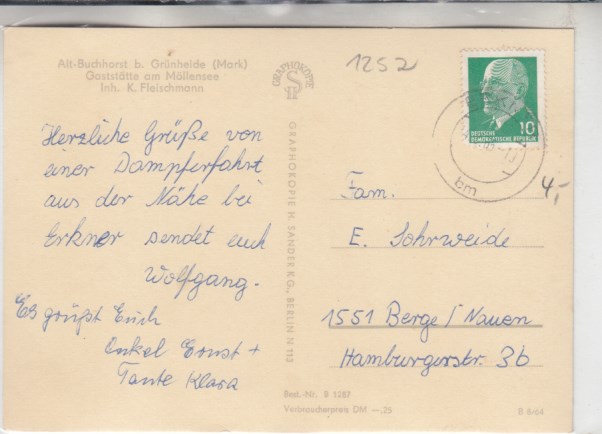 Alt-Buchhorst b. Grünheide (Mark)
Gaststätte am Möllensee
Inh. K. Fleischmann
Herzliche Grüße von
einer Dampferfahrt
aus der Nähe bei
Erkner sendet euch
Wolfgang.
Es grüßt Euch
Onkel Ernst +
Tante Klara
GRAPHOKOPIE
GRAPHOKOPIE H. SANDER KG., BERLIN N 113
Best.-Nr. B 1587
Verbraucherpreis DM —,25
1252
10
DEUTSCHE
DEMOKRATISCHE REPUBLIK
bm
4,-
Fam.
E. Sohrweide
1551 Berge / Nauen
Hamburgerstr. 3b
B 8/64